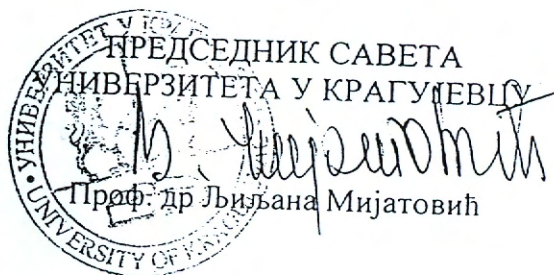 ПРЕДСЕДНИК САВЕТА
УНИВЕРЗИТЕТА У КРАГУЈЕВЦУ
Проф. др Љиљана Мијатовић
УНИВЕРЗИТЕТ У
UNIVERSITY OF